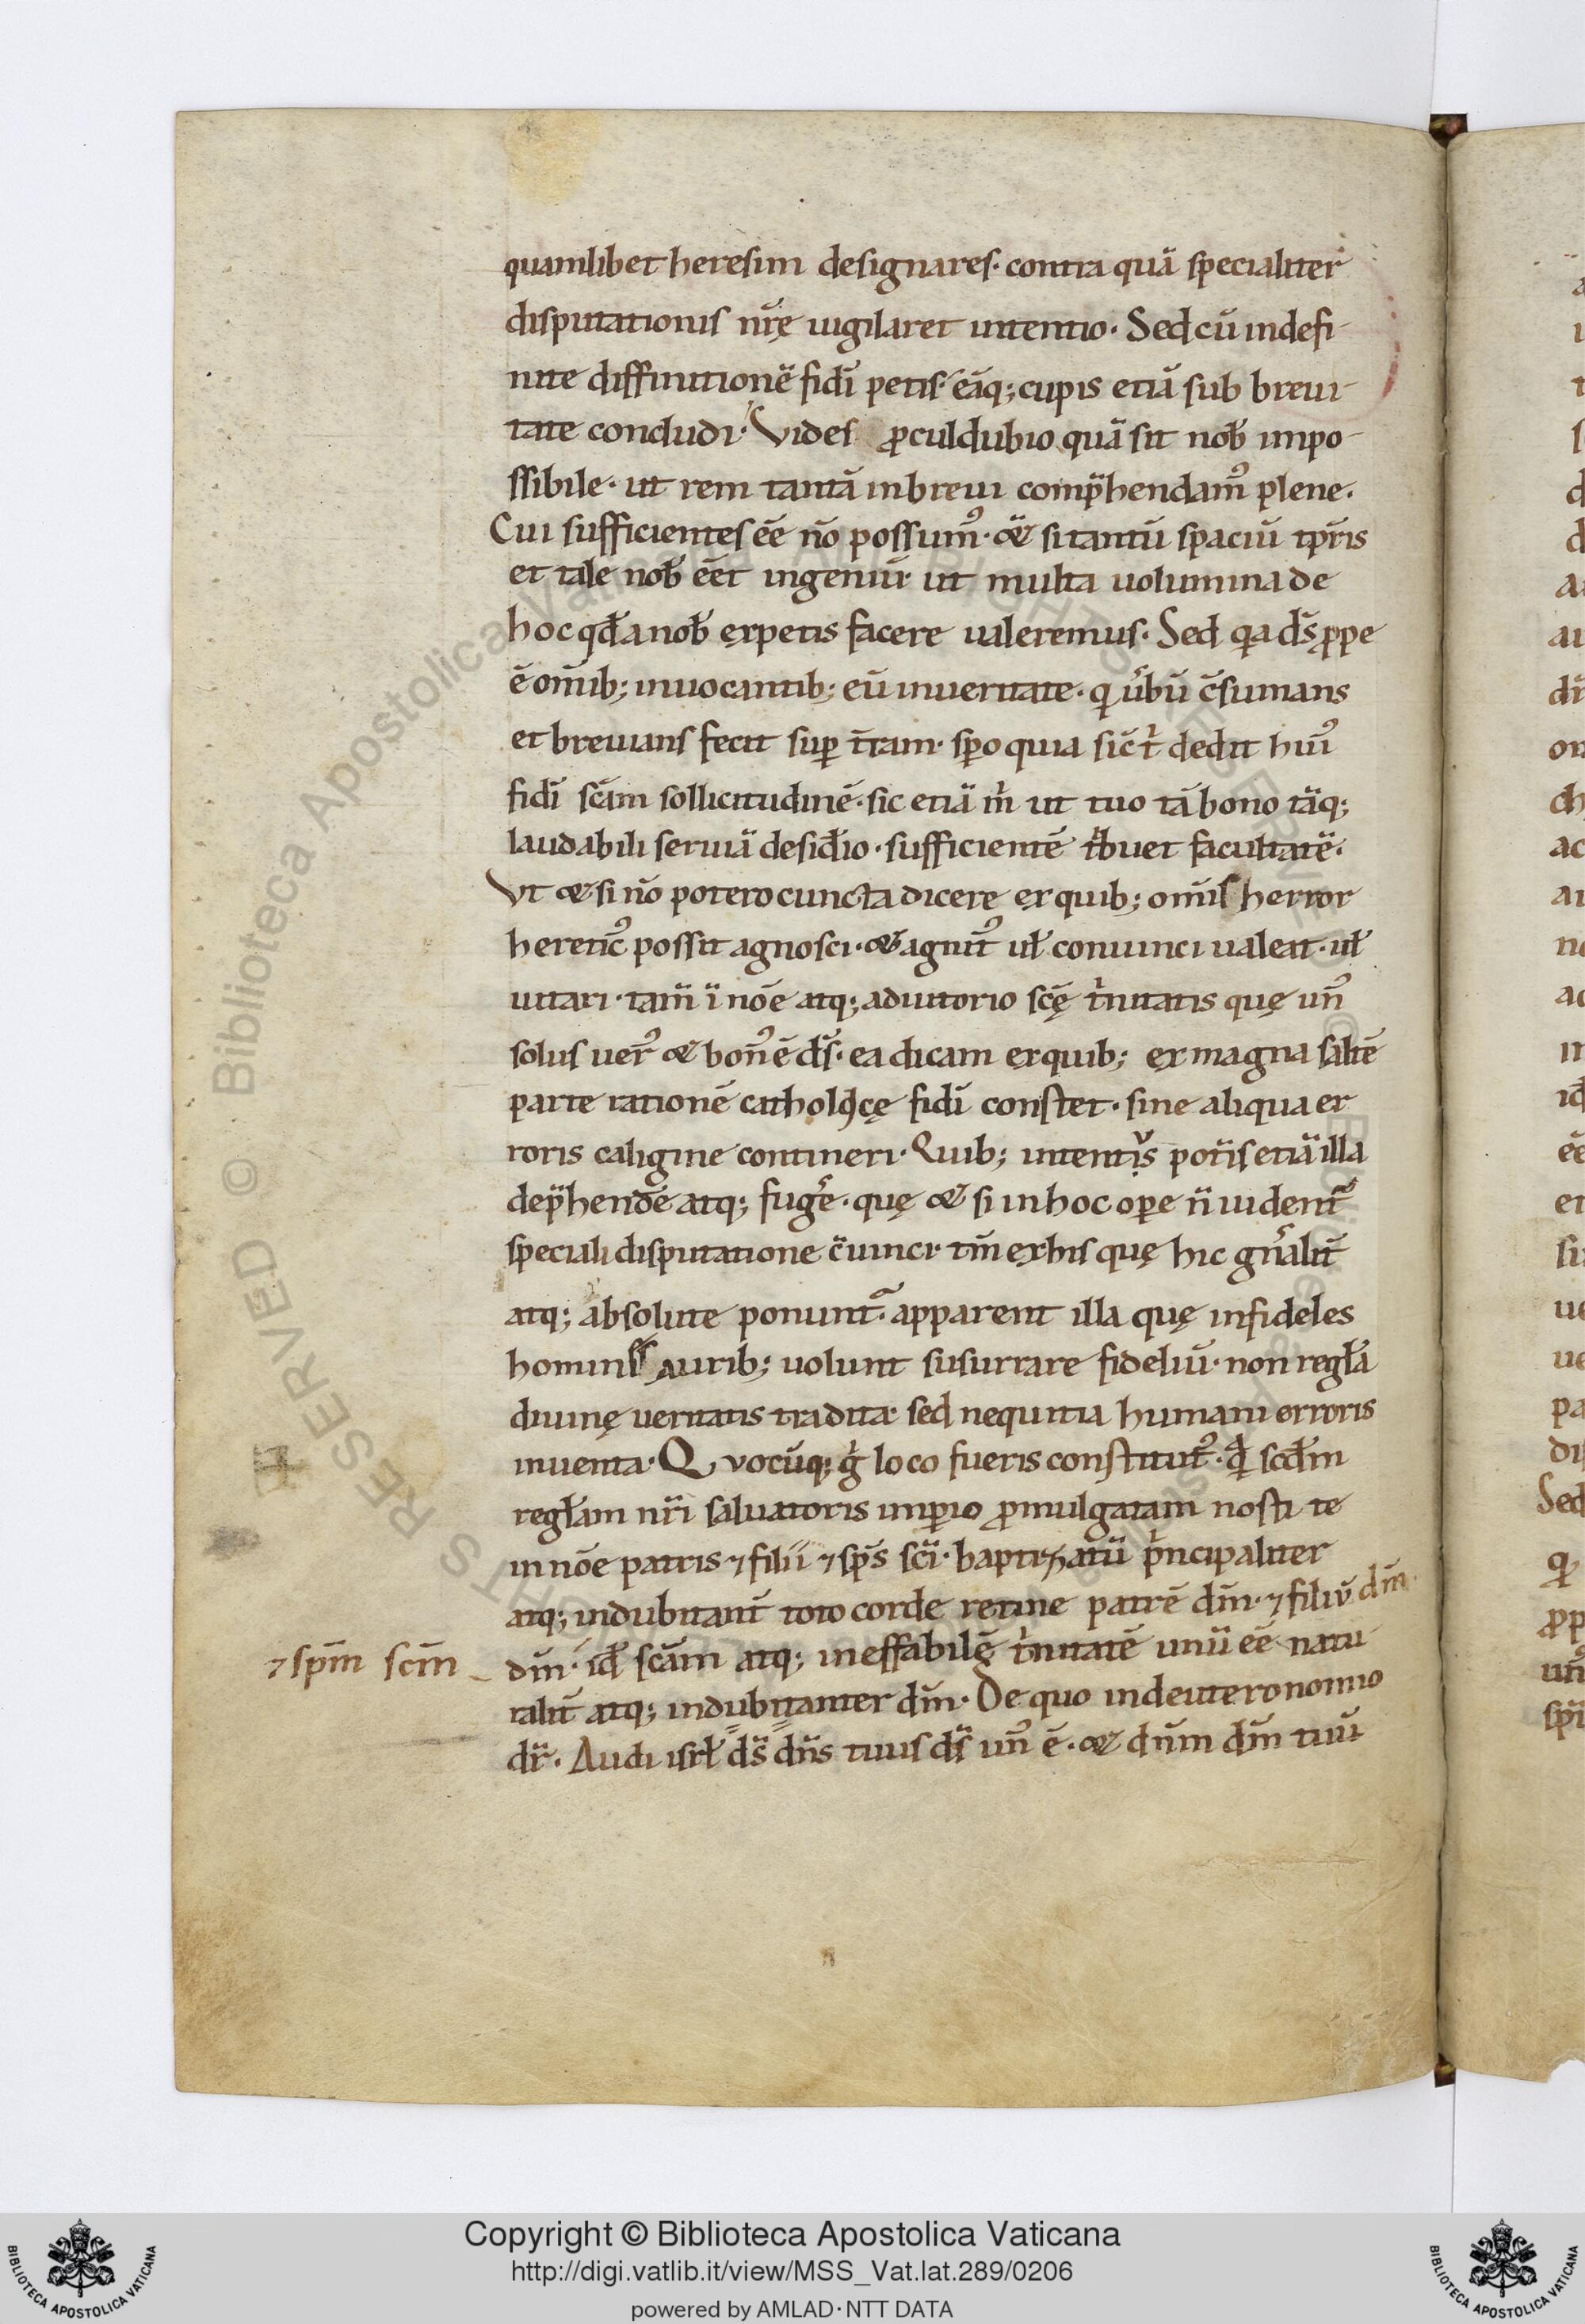 quamlibet heresim designares· contra quā specialiter
disputationis nr̄ę uigilaret intentio· Sed cū indefi-
nite diffinitionē fidī petis· eāq; cupis etiā sub breui-
tate concludi· Vides ꝓculdubio quā sit nob̄ impo-
ssibile· ut rem tantā in breui comp̄hendamꝰ plene·
Cui sufficientes eē nō possumꝰ· & si tantū spaciū tp̄ris
et tale nob̄ eēt ingeniū· ut multa uolumina de
hoc qd̄ a nob̄ expetis facere ualeremus· Sed qa ds̄ ꝓpe
ē om̄ib; inuocantib; eū in ueritate· q ūbū c̄sumans
et breuians fecit suꝑ t̄ram· sꝑo quia sic̄ t̄ dedit huiꝰ
fidī sc̄am sollicitudinē· sic etiā m̄ ut tuo tā bono tāq;
laudabili seruiā desid̄io· sufficientē t̄buet facultatē·
Vt & si nō potero cuncta dicere ex quib; om̄is herror
hereticꝰ possit agnosci· & agnitꝰ uł conuinci ualeat· uł
uitari· tam̄ ī nōe atq; adiutorio scę̄ t̄nitatis quę unꝰ
solus uerꝰ & bonꝰ ē ds̄· ea dicam ex quib; ex magna saltē
parte rationē catholicę fidī constet· sine aliqua er
roris caligine contineri· Quib; intentꝰ potīs etiā illa
dep̄hendē atq; fuḡe· quę & si in hoc oꝑe n̄ uident̄
speciali disputatione c̄uinci· tm̄ ex his quę hic gn̄alit̄
atq; absolute ponunt̄· apparent illa quę infideles
homines aurib; uolunt susurrare fideliū· non regła
diuinę ueritatis tradita· sed nequitia humani erroris
inuenta· Quocūq; ḡ loco fueris constitutꝰ· q̄ scd̄m
regłam nr̄i saluatoris imꝑio ꝓmulgatam nosti te
in nōe patris ⁊ filii ⁊ sp̄s sc̄i· baptizatū p̄ncipaliter
atq; indubitant̄ toto corde retine patrē dm̄· ⁊ filiū dm̄·
⁊ sp̄m sc̄m
dm̄· id̄ sc̄am atq; ineffabilē t̄nitatē unū eē natu
ralit̄ atq; indubitanter dm̄· De quo in deuteronomio
dr̄· Audi isrł ds̄ dn̄s tuus ds̄ unꝰ ē· & dn̄m dm̄ tuū
RIGHTS RESERVED © Biblioteca Apostolica Vaticana
Copyright © Biblioteca Apostolica Vaticana
http://digi.vatlib.it/view/MSS_Vat.lat.289/0206
powered by AMLAD·NTT DATA
BIBLIOTECA APOSTOLICA VATICANA
BIBLIOTECA APOSTOLICA VATICANA